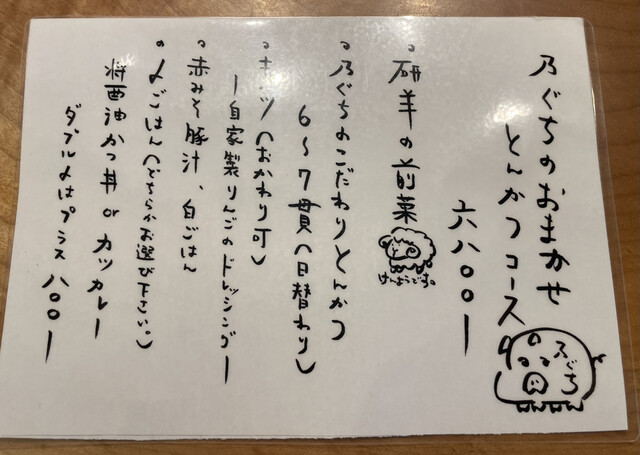 乃ぐちのおまかせ
とんかつコース
六八〇〇ー
乃ぐち
。研羊の前菜
けんようです。
。乃ぐちのこだわりとんかつ
6〜7貫(日替わり)
。キャベツ(おかわり可)
ー自家製りんごのドレッシングー
。赤みそ豚汁、白ごはん
。〆ごはん(どちらかお選び下さい。)
醤油かつ丼 or カツカレー
ダブル〆はプラス 八〇〇ー